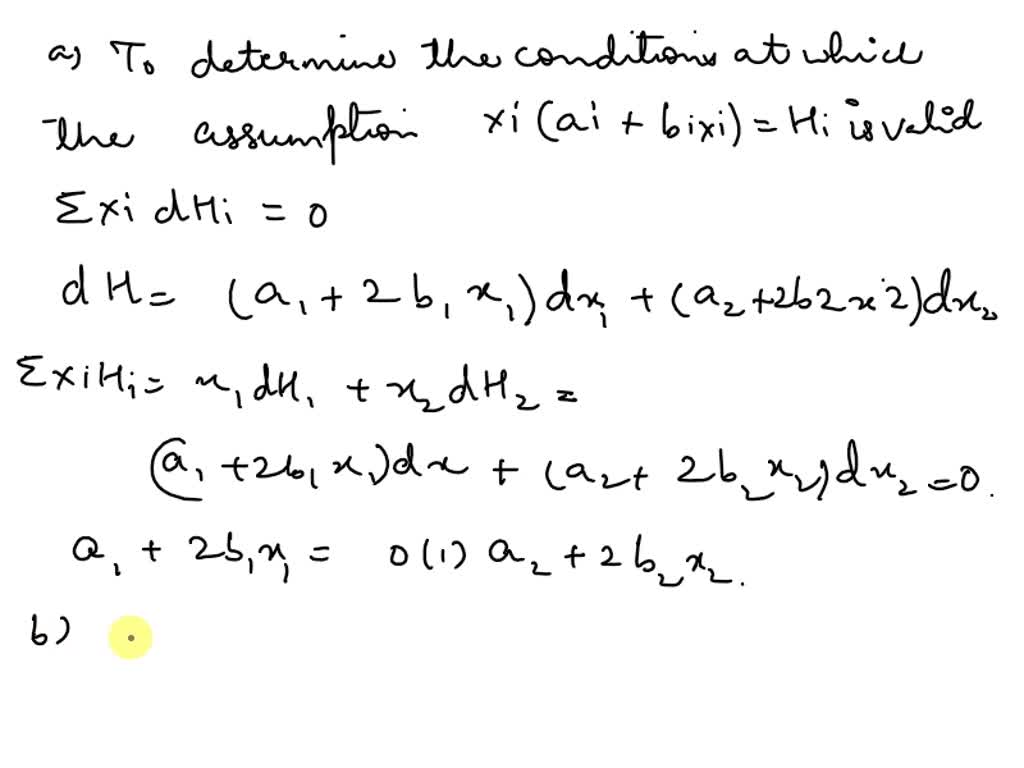 a) To determine the conditions at which
the assumption xi (ai + bixi) = Hi is valid
Σxi dHi = 0
dH = (a₁ + 2b₁x₁)dx₁ + (a₂+2b2x2)dx₂
ΣxiHi = x₁dH₁ + x₂dH₂ =
(a₁ + 2b₁x₁)dx + (a₂+ 2b₂x₂)dx₂ = 0.
a₁ + 2b₁x₁ = 0 (1) a₂ + 2b₂x₂.
b)